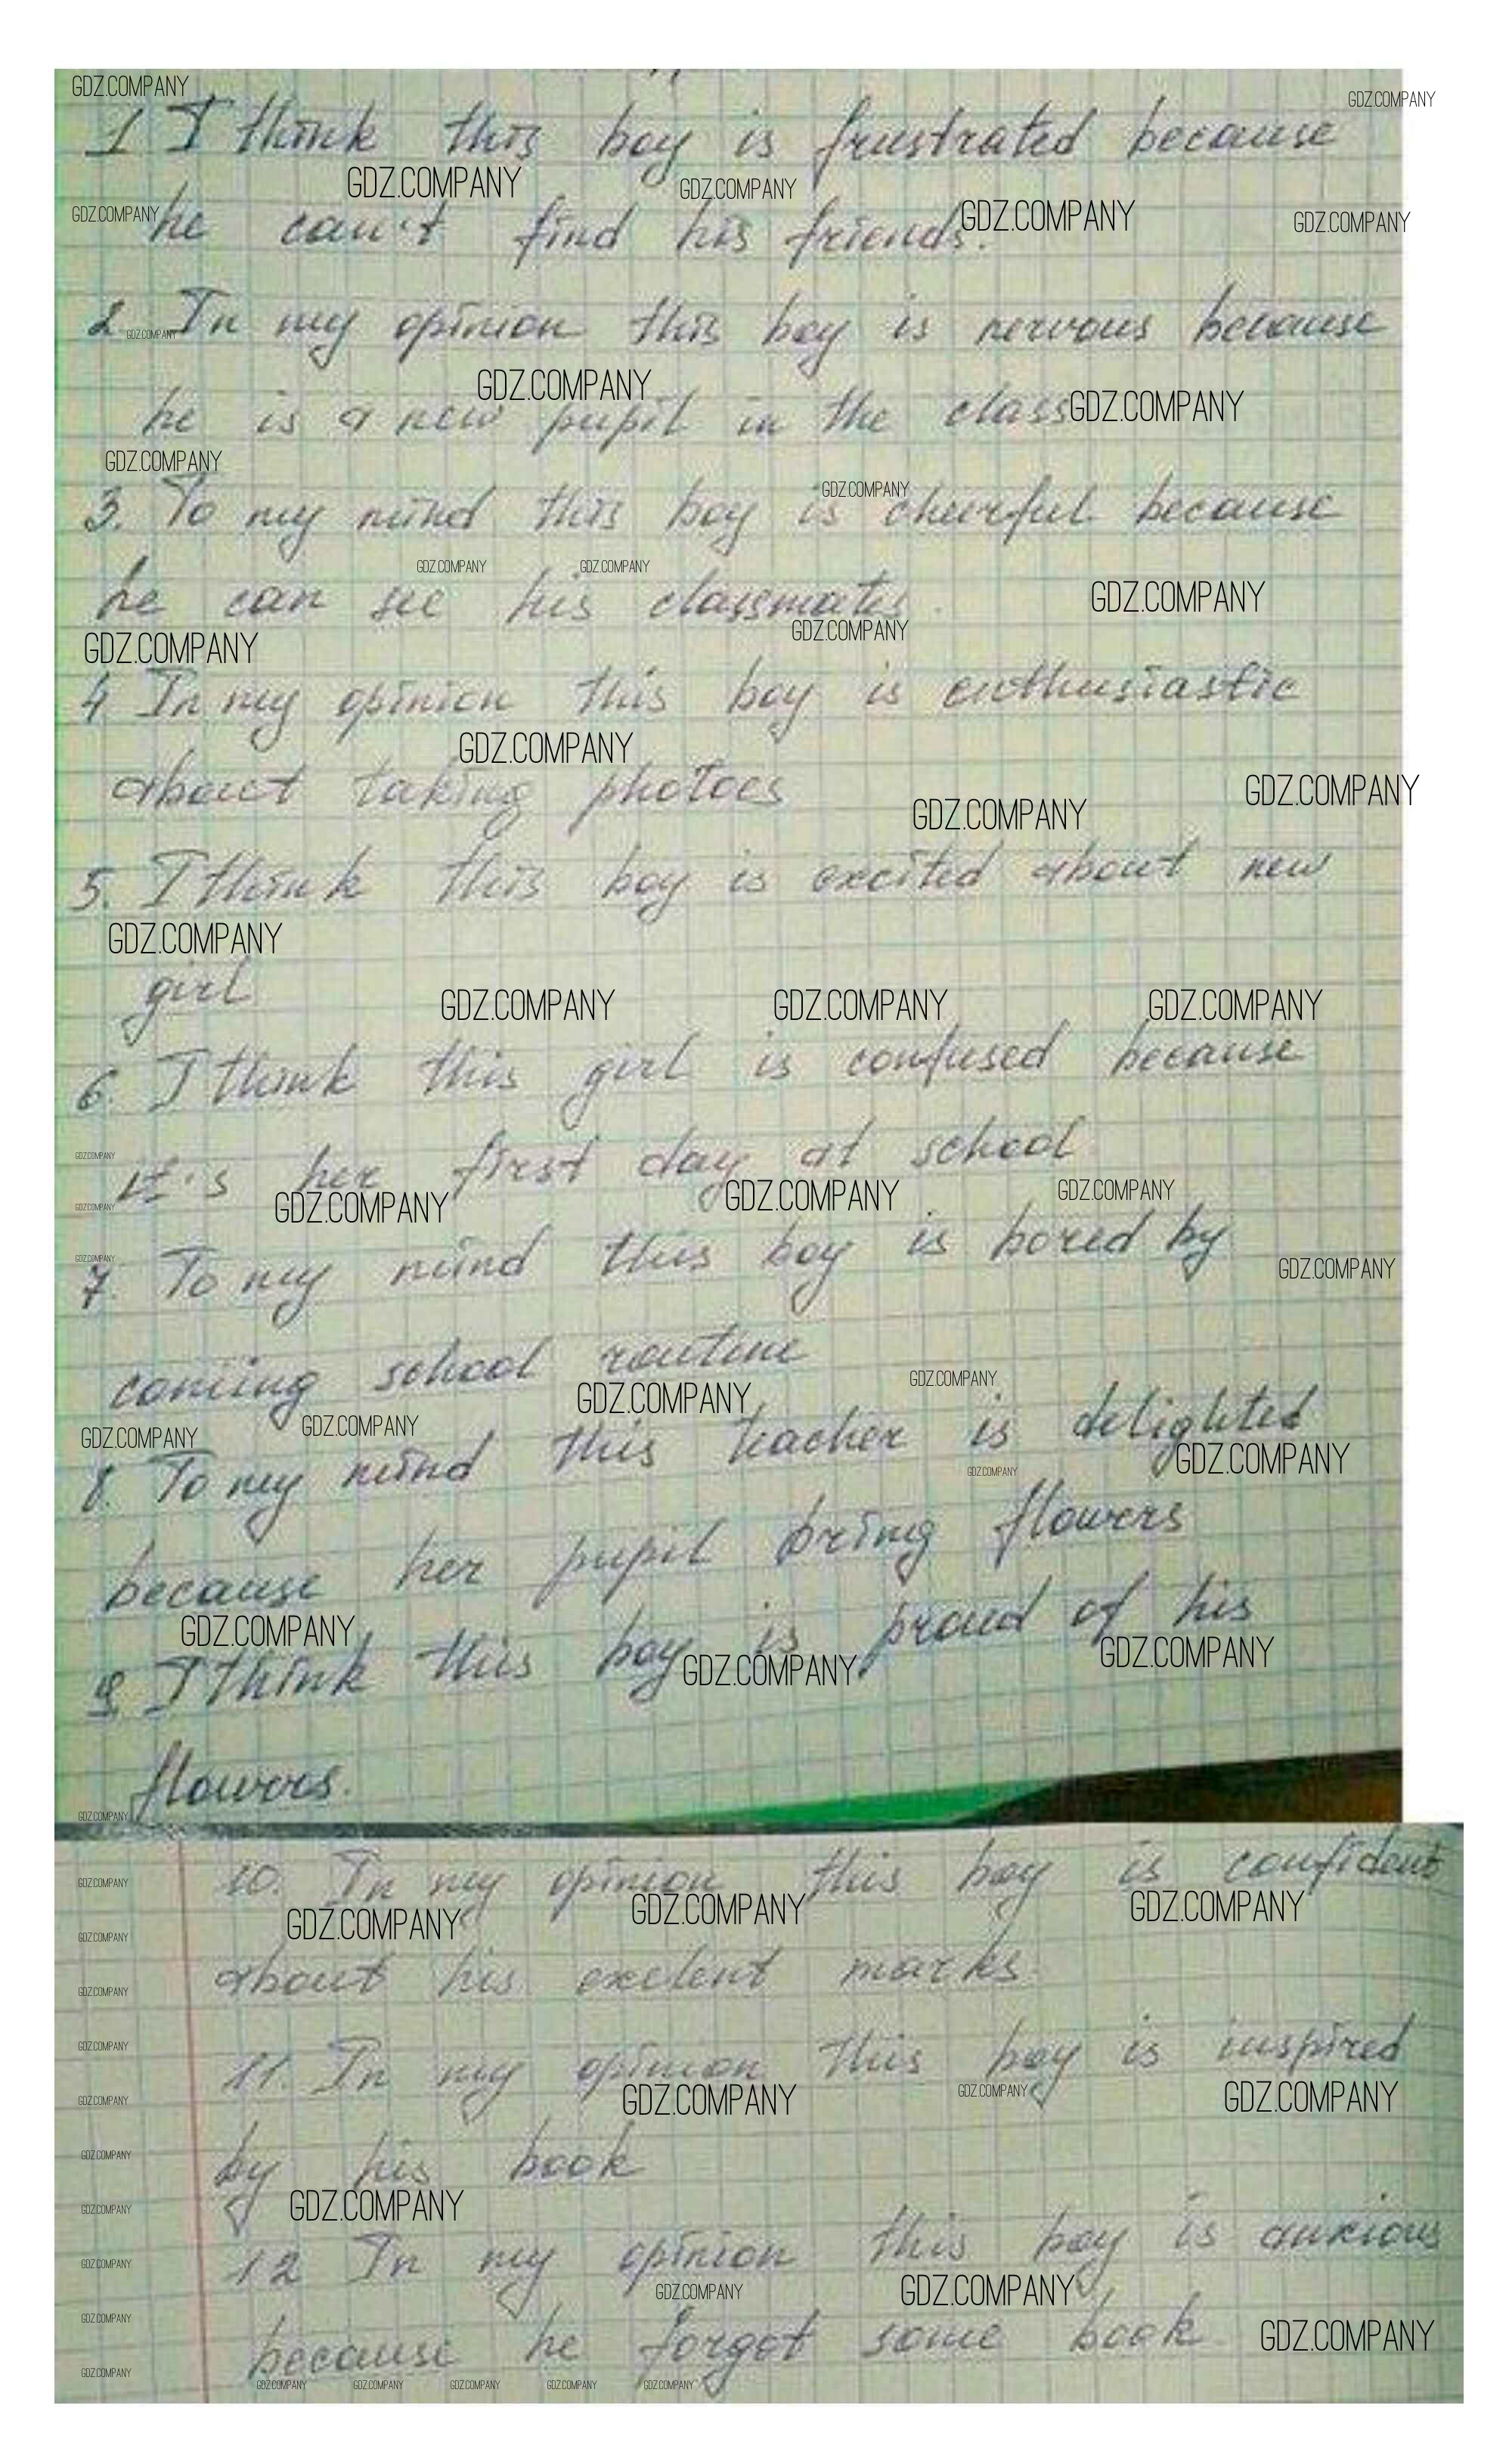 1 I think this boy is frustrated because
he can't find his friends.
2 In my opinion this boy is nervous because
he is a new pupil in the class
3. To my mind this boy is cheerful because
he can see his classmates.
4 In my opinion this boy is enthusiastic
about taking photoes
5. I think this boy is excited about new
girl
6. I think this girl is confused because
it's her first day at school
7. To my mind this boy is bored by
coming school routine
8. To my mind this teacher is delighted
because her pupil bring flowers
9 I think this boy is proud of his
flowers.
10. In my opinion this boy is confident
about his exelent marks.
11. In my opinion this boy is inspired
by his book
12 In my opinion this boy is anxious
because he forgot some book
GDZ.COMPANY